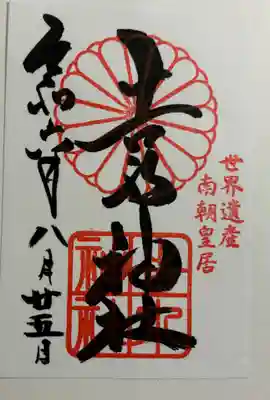 世界遺産
南朝皇居
吉水神社
令和六年八月廿五日